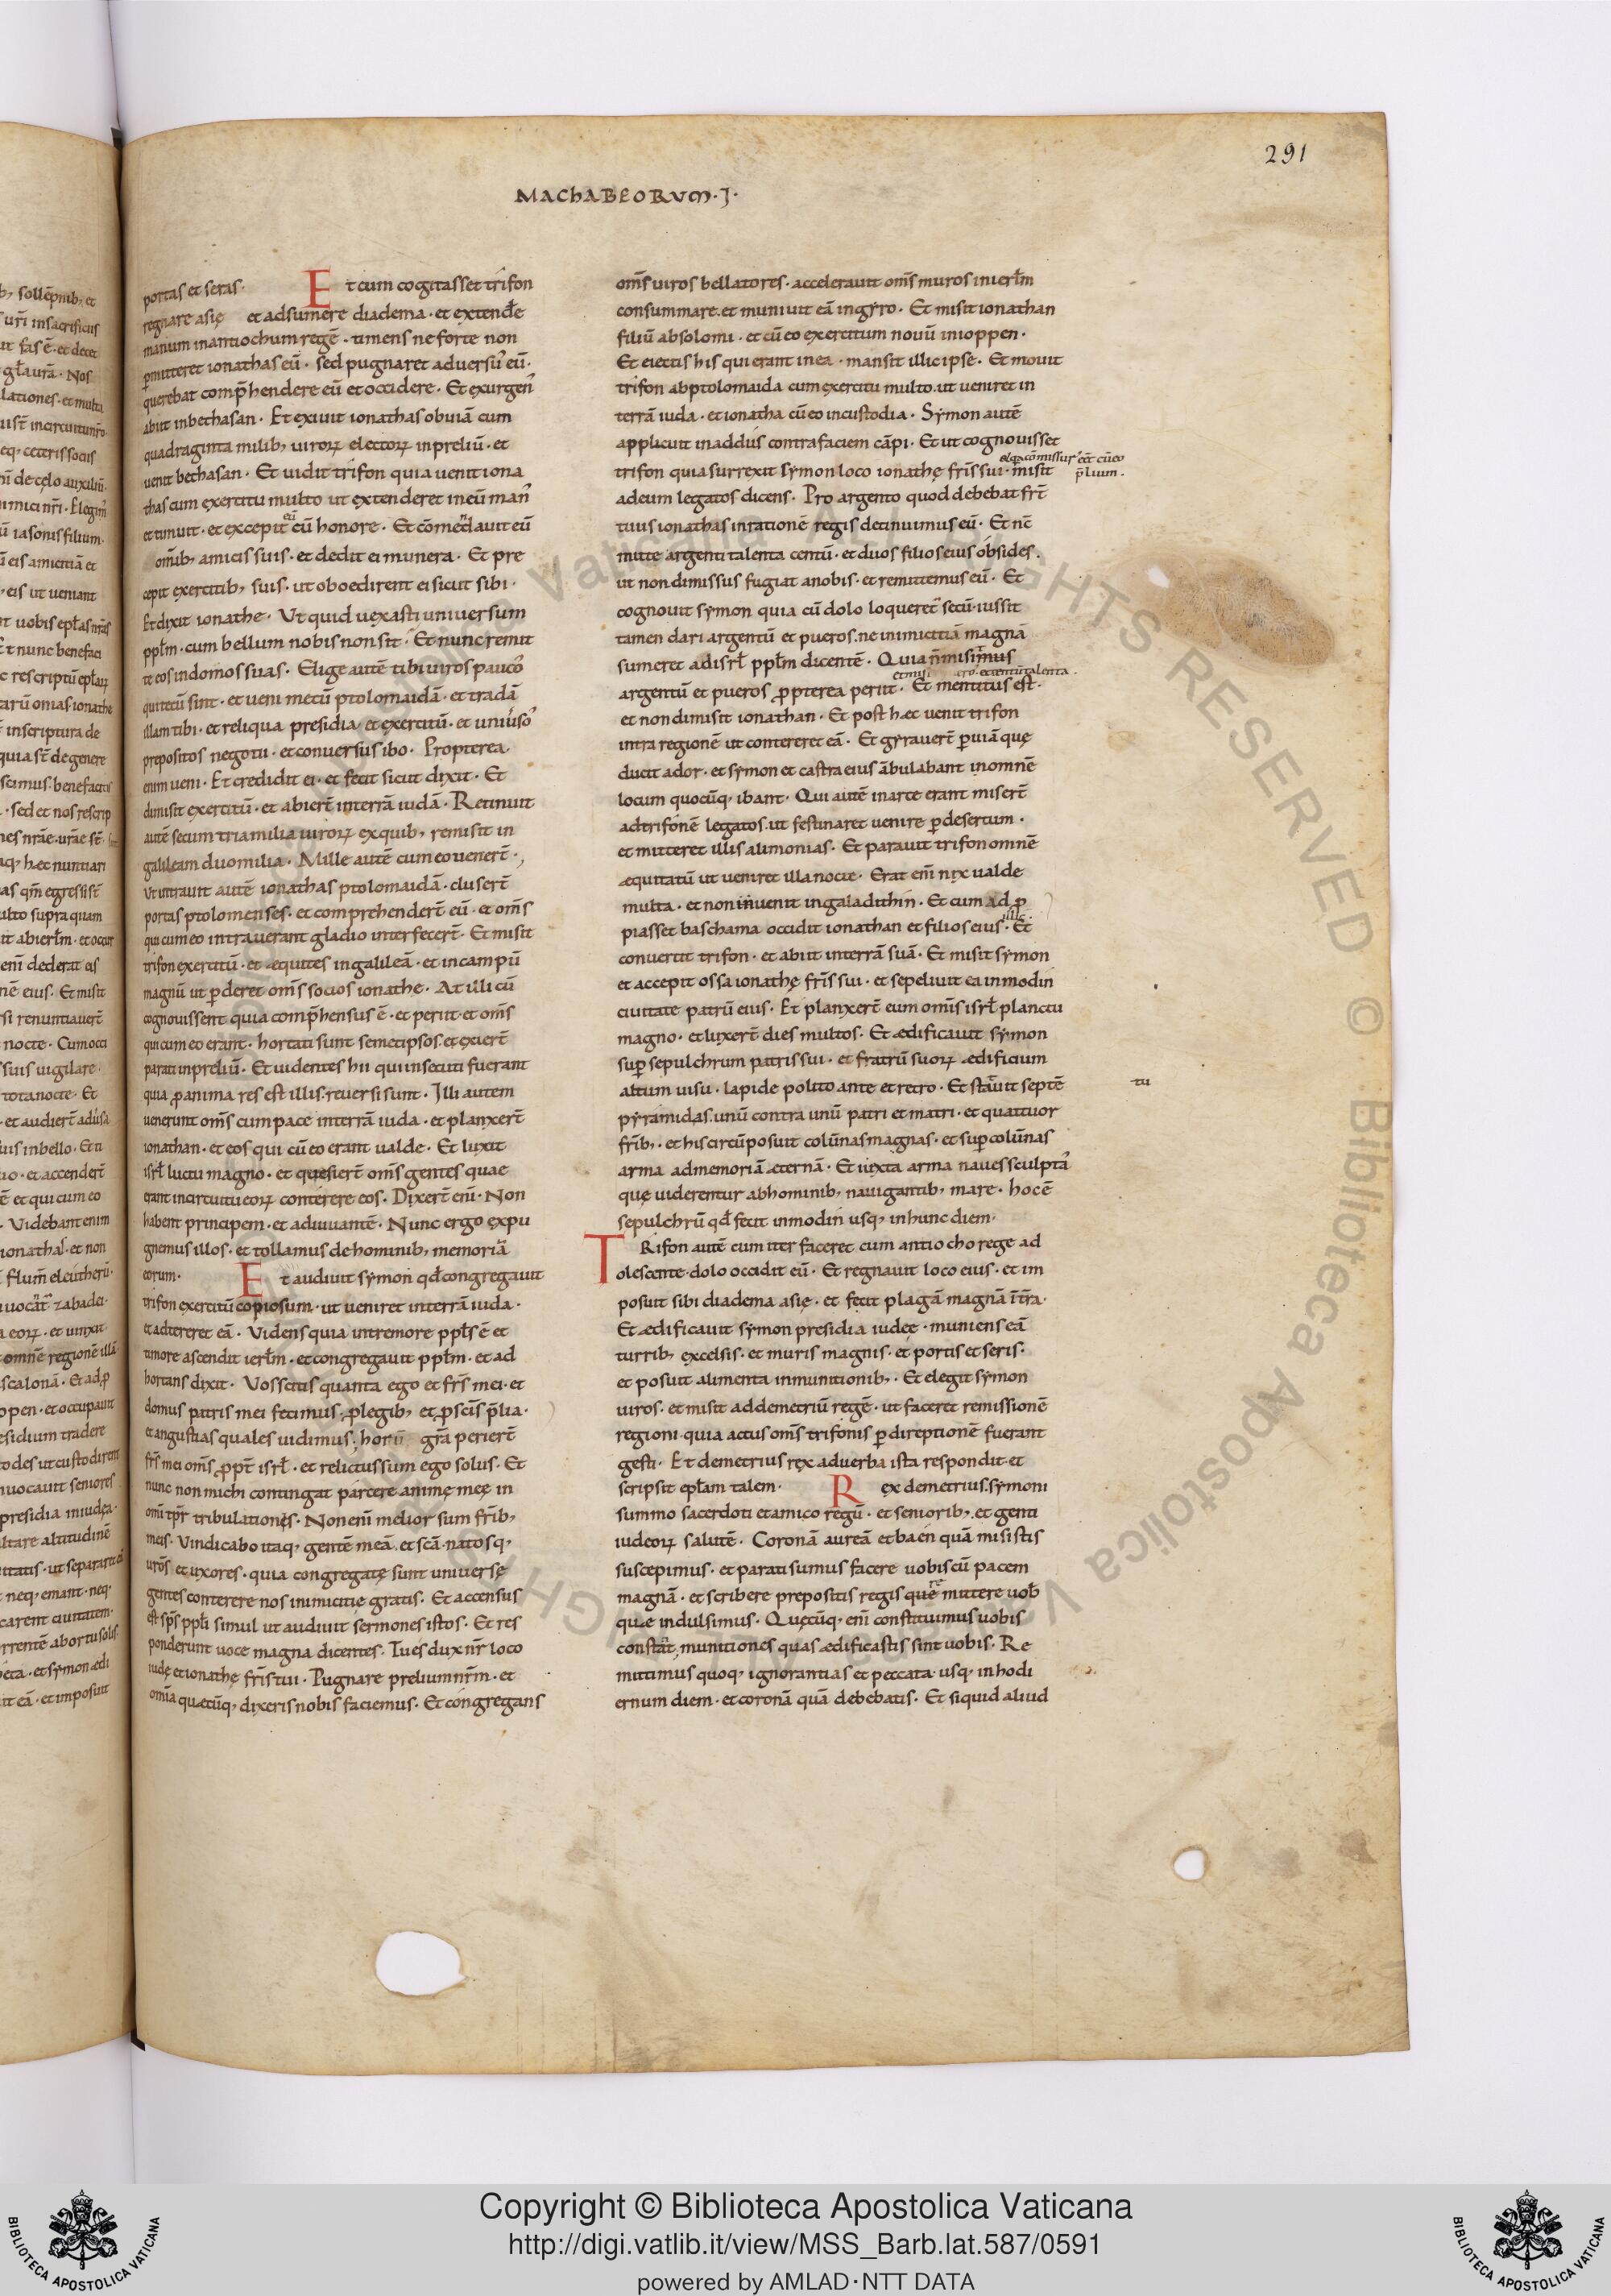 291
MACHABEORUM·I·
portas et seras· Et cum cogitasset trifon
regnare asię et adsumere diadema· et extendẽ
manum inantiochum regẽ· timens ne forte non
ꝑmitteret ionathas eũ· sed pugnaret aduersũ eũ·
querebat comp̃hendere eũ et occidere· Et exurgens
abiit inbethasan· Et exiuit ionathas obuiã cum
quadraginta milib; uiroꝝ electoꝝ inpreliũ· et
uenit bethasan· Et uidit trifon quia uenit iona
thas cum exercitu multo ut extenderet ineũ man᷒
et timuit· et excepit eũ cũ honore· Et cõmendauit eũ
omĩb; amicis suis· et dedit ei munera· Et pre
cepit exercitib; suis· ut oboedirent ei sicut sibi·
Et dixit ionathe· Ut quid uexasti uniuersum
pp̃lm· cum bellum nobis non sit· Et nunc remit
te eos indomos suas· Elige autẽ tibi uiros pauco᷒
qui tecũ sint· et ueni mecũ ptolomaidã· et tradã
illam tibi· et reliqua presidia· et exercitũ· et uniũso᷒
prepositos negotii· et conuersus ibo· Propterea
enim ueni· Et credidit ei· et fecit sicut dixit· Et
dimisit exercitũ· et abiert̃ interrã iudã· Retinuit
autẽ secum tria milia uiroꝝ exquib; remisit in
galileam duo milia· Mille autẽ cum eo uenert̃·
Ut intrauit autẽ ionathas ptolomaidã· cluserт̃
portas ptolomenses· et comprehendert̃ eũ· et om̃s
qui cum eo intrauerant gladio interfecert̃· Et misit
trifon exercitũ· et æquites in galileã· et incampũ
magnũ ut ꝑderet om̃s socios ionathe· At illi cũ
cognouissent quia comp̃hensus ẽ· et periit· et om̃s
qui cum eo erant· hortati sunt semetipsos· et exiert̃
parati inpreliũ· Et uidentes hii qui insecuti fuerant
quia ꝓanima res est illis· reuersi sunt· Illi autem
uenerunt om̃s cum pace interrã iuda· et planxert̃
ionathan· et eos qui cũ eo erant ualde· Et luxit
isrł luctu magno· et quęsiert̃ om̃s gentes quae
erant incircuitu eoꝝ conterere eos· Dixert̃ eñi· Non
habent principem· et adiuuantẽ· Nunc ergo expu
gnemus illos· et tollamus dehominib; memoriã
eorum· Et audiuit symon qđ congregauit
trifon exercitũ copiosum· ut ueniret interrã iuda·
et adtereret eã· Uidens quia intremore ppl̃s ẽ et
timore ascendit ierl̃m· et congregauit ppl̃m· et ad
hortans dixit· Uos scitis quanta ego et fr̃s mei· et
domus patris mei fecimus· ꝓlegib; et ꝓ sc̃is p̃lia·
et angustias quales uidimus· horũ gr̃a periert̃
fr̃s mei om̃s ꝓpt̃ isrł· et relictus sum ego solus· Et
nunc non michi contingat parcere animę meę in
om̃i tp̃r tribulationis· Non eñi melior sum fr̃ib;
meis· Uindicabo itaq; gentẽ meã· et sc̃ã· natosq;
ur̃os et uxores· quia congregatę sunt uniuersę
gentes conterere nos inimicitię gratis· Et accensus
est sp̃s ppl̃i simul ut audiuit sermones istos· Et res
ponderunt uoce magna dicentes· Tu es dux nr̃ loco
iudę et ionathę fr̃is tui· Pugnare prelium nr̃m· et
om̃ia quæcũq; dixeris nobis faciemus· Et congregans
om̃s uiros bellatores· accelerauit om̃s muros inierl̃m
consummare· et muniuit eã ingyro· Et misit ionathan
filiũ absolomi· et cũ eo exercitum nouũ inioppen·
Et eiectis his qui erant inea· mansit illic ipse· Et mouit
trifon abptolomaida cum exercitu multo· ut ueniret in
terrã iuda· et ionatha cũ eo incustodia· Symon autẽ
applicuit inaddus contra faciem cãpi· Et ut cognouisset
trifon quia surrexit symon loco ionathę fr̃is sui· misit
et qa cõmissur᷒ eẽt cũ eo
p̃lium·
adeum legatos dicens· Pro argento quod debebat fr̃t
tuus ionathas inrationẽ regis detinuimus eũ· Et nc̃
mitte argenti talenta centũ· et duos filios eius obsides·
ut non dimissus fugiat anobis· et remittemus eũ· Et
cognouit symon quia cũ dolo loqueret᷒ secũ· iussit
tamen dari argentũ et pueros· ne inimicitiã magnã
sumeret adisrł ppl̃m dicentẽ· Quia ñ misim᷒us
argentũ et pueros ꝓpterea periit· Et mentitus est·
et non dimisit ionathan· Et post hæc uenit trifon
intra regionẽ ut contereret eã· Et gyrauert̃ ꝑuiã quę
ducit ador· et symon et castra eius ãbulabant inomnẽ
locum quocũq; ibant· Qui autẽ inarce erant misert̃
adtrifonẽ legatos· ut festinaret uenire ꝑdesertum·
et mitteret illis alimonias· Et parauit trifon omnẽ
æquitatũ ut ueniret illa nocte· Erat eñi nix ualde
multa· et non inuenit in galadithin· Et cum adꝓ
piasset baschama occidit ionathan et filios eius illic· Et
conuertit trifon· et abiit interrã suã· Et misit symon
et accepit ossa ionathę fr̃is sui· et sepeliuit ea inmodin
ciuitate patrũ eius· Et planxert̃ eum om̃is isrł planctu
magno· et luxert̃ dies multos· Et ædificauit symon
suꝑ sepulchrum patris sui· et fratrũ suoꝝ ædificium
altum uisu· lapide polito ante et retro· Et stauit septẽ
tu
pyramidas· unũ contra unũ patri et matri· et quattuor
fr̃ib;· et his circũposuit colũnas magnas· et suꝑ colũnas
arma admemoriã æternã· Et iuxta arma naues sculpta᷒
quę uiderentur abhominib; nauigantib; mare· hoc ẽ
sepulchrũ qđ fecit inmodin usq; inhunc diem·
TRifon autẽ cum iter faceret cum antiocho rege ad
olescente· dolo occidit eũ· Et regnauit loco eius· et im
posuit sibi diadema asię· et fecit plagã magnã ĩ t̃ra·
Et ædificauit symon presidia iudęę· muniens eã
turrib; excelsis· et muris magnis· et portis et seris·
et posuit alimenta inmunitionib;· Et elegit symon
uiros· et misit addemetriũ regẽ· ut faceret remissionẽ
regioni· quia actus om̃s trifonis ꝑdireptionẽ fuerant
gesti· Et demetrius rex aduerba ista respondit· et
scripsit epl̃am talem· Rex demetrius· symoni
summo sacerdoti et amico regũ· et seniorib;· et genti
iudeoꝝ salutẽ· Coronã aureã et baen quã misistis
suscepimus· et parati sumus facere uobiscũ pacem
magnã· et scribere prepositis regis que remittere uob̃
quæ indulsimus· Quęcũq; eñi constituimus uobis
constãt· munitiones quas ædificastis sint uobis· Re
mittimus quoq; ignorantias et peccata· usq; inhodi
ernum diem· et coronã quã debebatis· Et siquid aliud
Copyright © Biblioteca Apostolica Vaticana
http://digi.vatlib.it/view/MSS_Barb.lat.587/0591
powered by AMLAD·NTT DATA